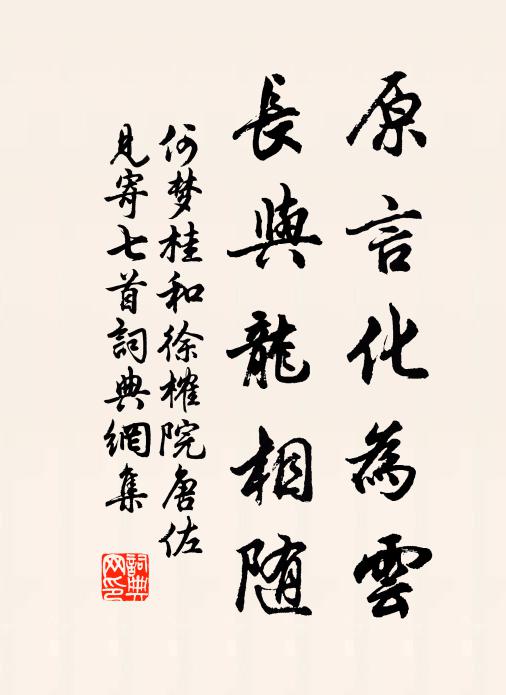 原言化為雲
長與龍相随
何梦桂和徐榷院唐佐
見寄七首詞典網集
詞典
网印